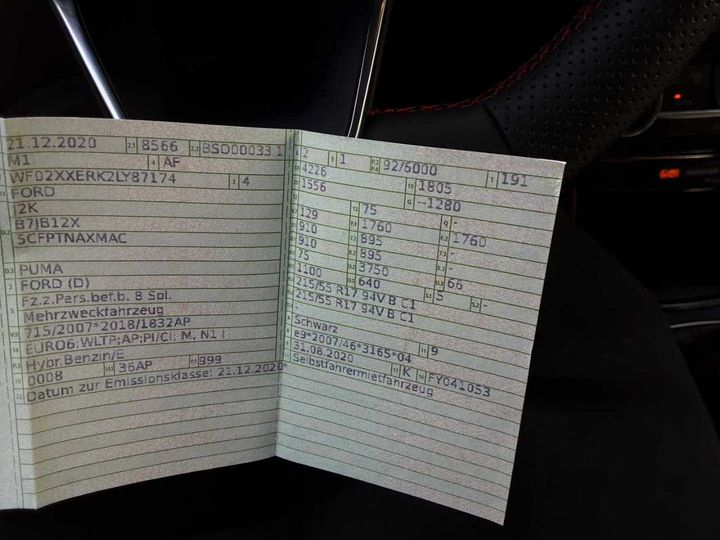 21.12.2020 2.1 8566 2.2 BSD00033 1
M1 4 AF
WF02XXERK2LY87174 3 4
FORD
J2K
B7JB12X
5CFPTNAXMAC
D.3 PUMA
2 FORD (D)
Fz.z.Pers.bef.b. 8 Spl.
5 Mehrzweckfahrzeug
715/2007*2018/1832AP
EURO6;WLTP;AP;PI/CI; M, N1 I
Hybr.Benzin/E
0008 36AP 999
22 Datum zur Emissionsklasse: 21.12.2020
2 1 P.2 P.4 92/6000 T 191
4226 1805
1556 G --1280
- 75 Q -
129 1760 1760
910 895 -
910 895 -
75 3750 66
1100 640 S.1 5 S.2 -
215/55 R17 94V B C1
215/55 R17 94V B C1
Schwarz
e9*2007/46*3165*04 9
31.08.2020 K FY041053
Selbstfahrermietfahrzeug